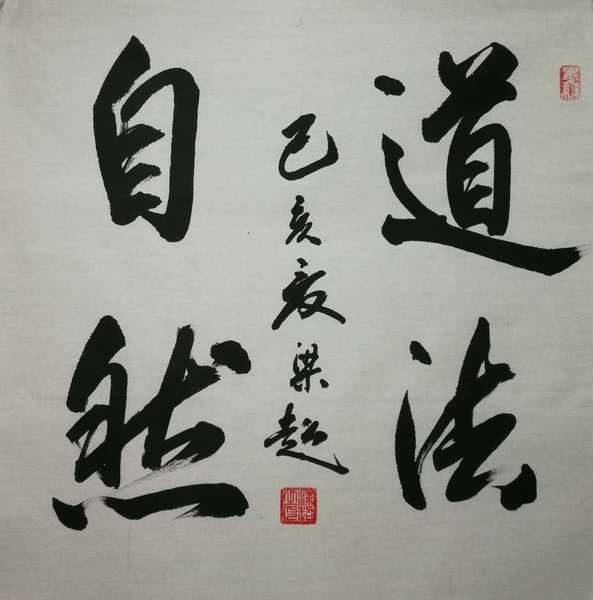 道法
自然
己亥夏梁超